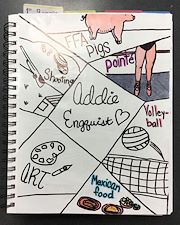 FFA
Pigs
pointe
Shooting
addie
Engquist
Volley-
ball
ART
Mexican
food